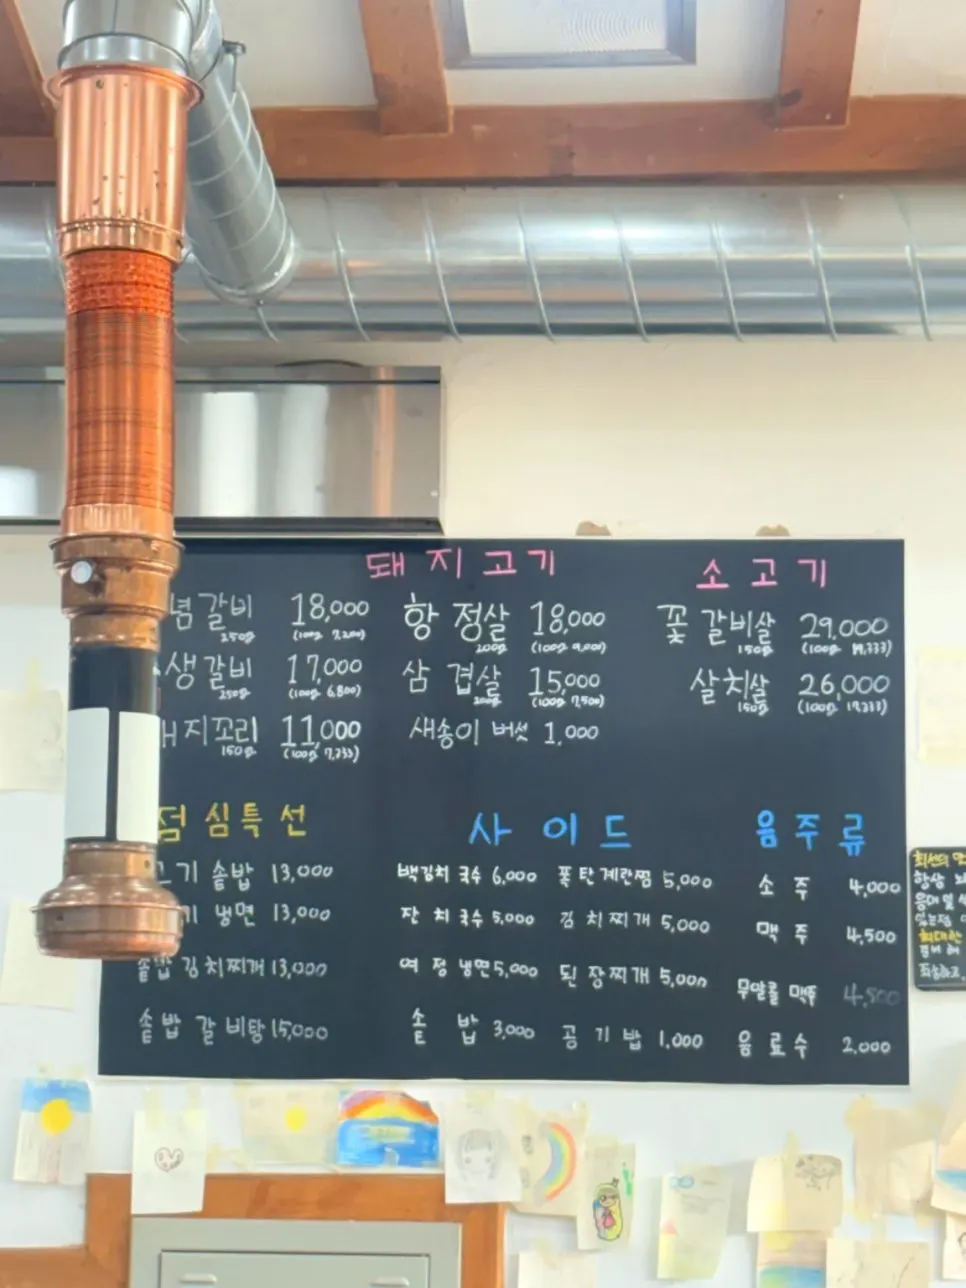 돼지고기
념갈비 18,000
250g (100g 7,200)
생갈비 17,000
250g (100g 6,800)
지꼬리 11,000
150g (100g 7,333)
항정살 18,000
200g (100g 9,000)
삼겹살 15,000
200g (100g 7,500)
새송이 버섯 1,000
소고기
꽃갈비살 29,000
150g (100g 19,333)
살치살 26,000
150g (100g 17,333)
점심특선
고기 솥밥 13,000
기 냉면 13,000
솥밥 김치찌개 13,000
솥밥 갈비탕 15,000
사이드
백김치 국수 6,000
잔치국수 5,000
여정냉면 5,000
솥밥 3,000
폭탄계란찜 5,000
김치찌개 5,000
된장찌개 5,000
공기밥 1,000
음주류
소주 4,000
맥주 4,500
무알콜 맥주 4,500
음료수 2,000
최선의
항상
최대한